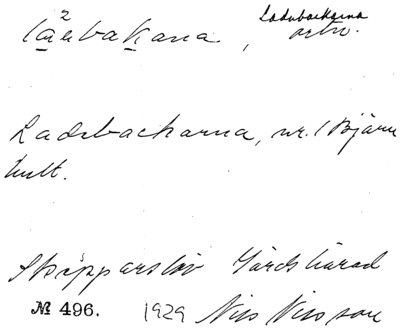 Ladubackarna
lạ̈ubakana, ortn.
Ladubackarna, nr. 1 Bjärn
hult.
Skepparslöv Gärds härad
№ 496. 1929 Nils Nilsson